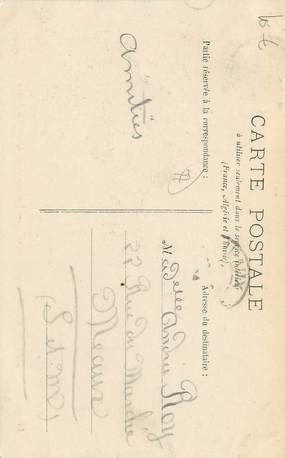 CARTE POSTALE
à utiliser seulement dans le service intérieur
(France, Algérie et Tunisie)
Partie réservée à la correspondance :
Adresse du destinataire :
Amitiés
Madelle Roy
22 Rue du Marché
Meaux
S. et M.